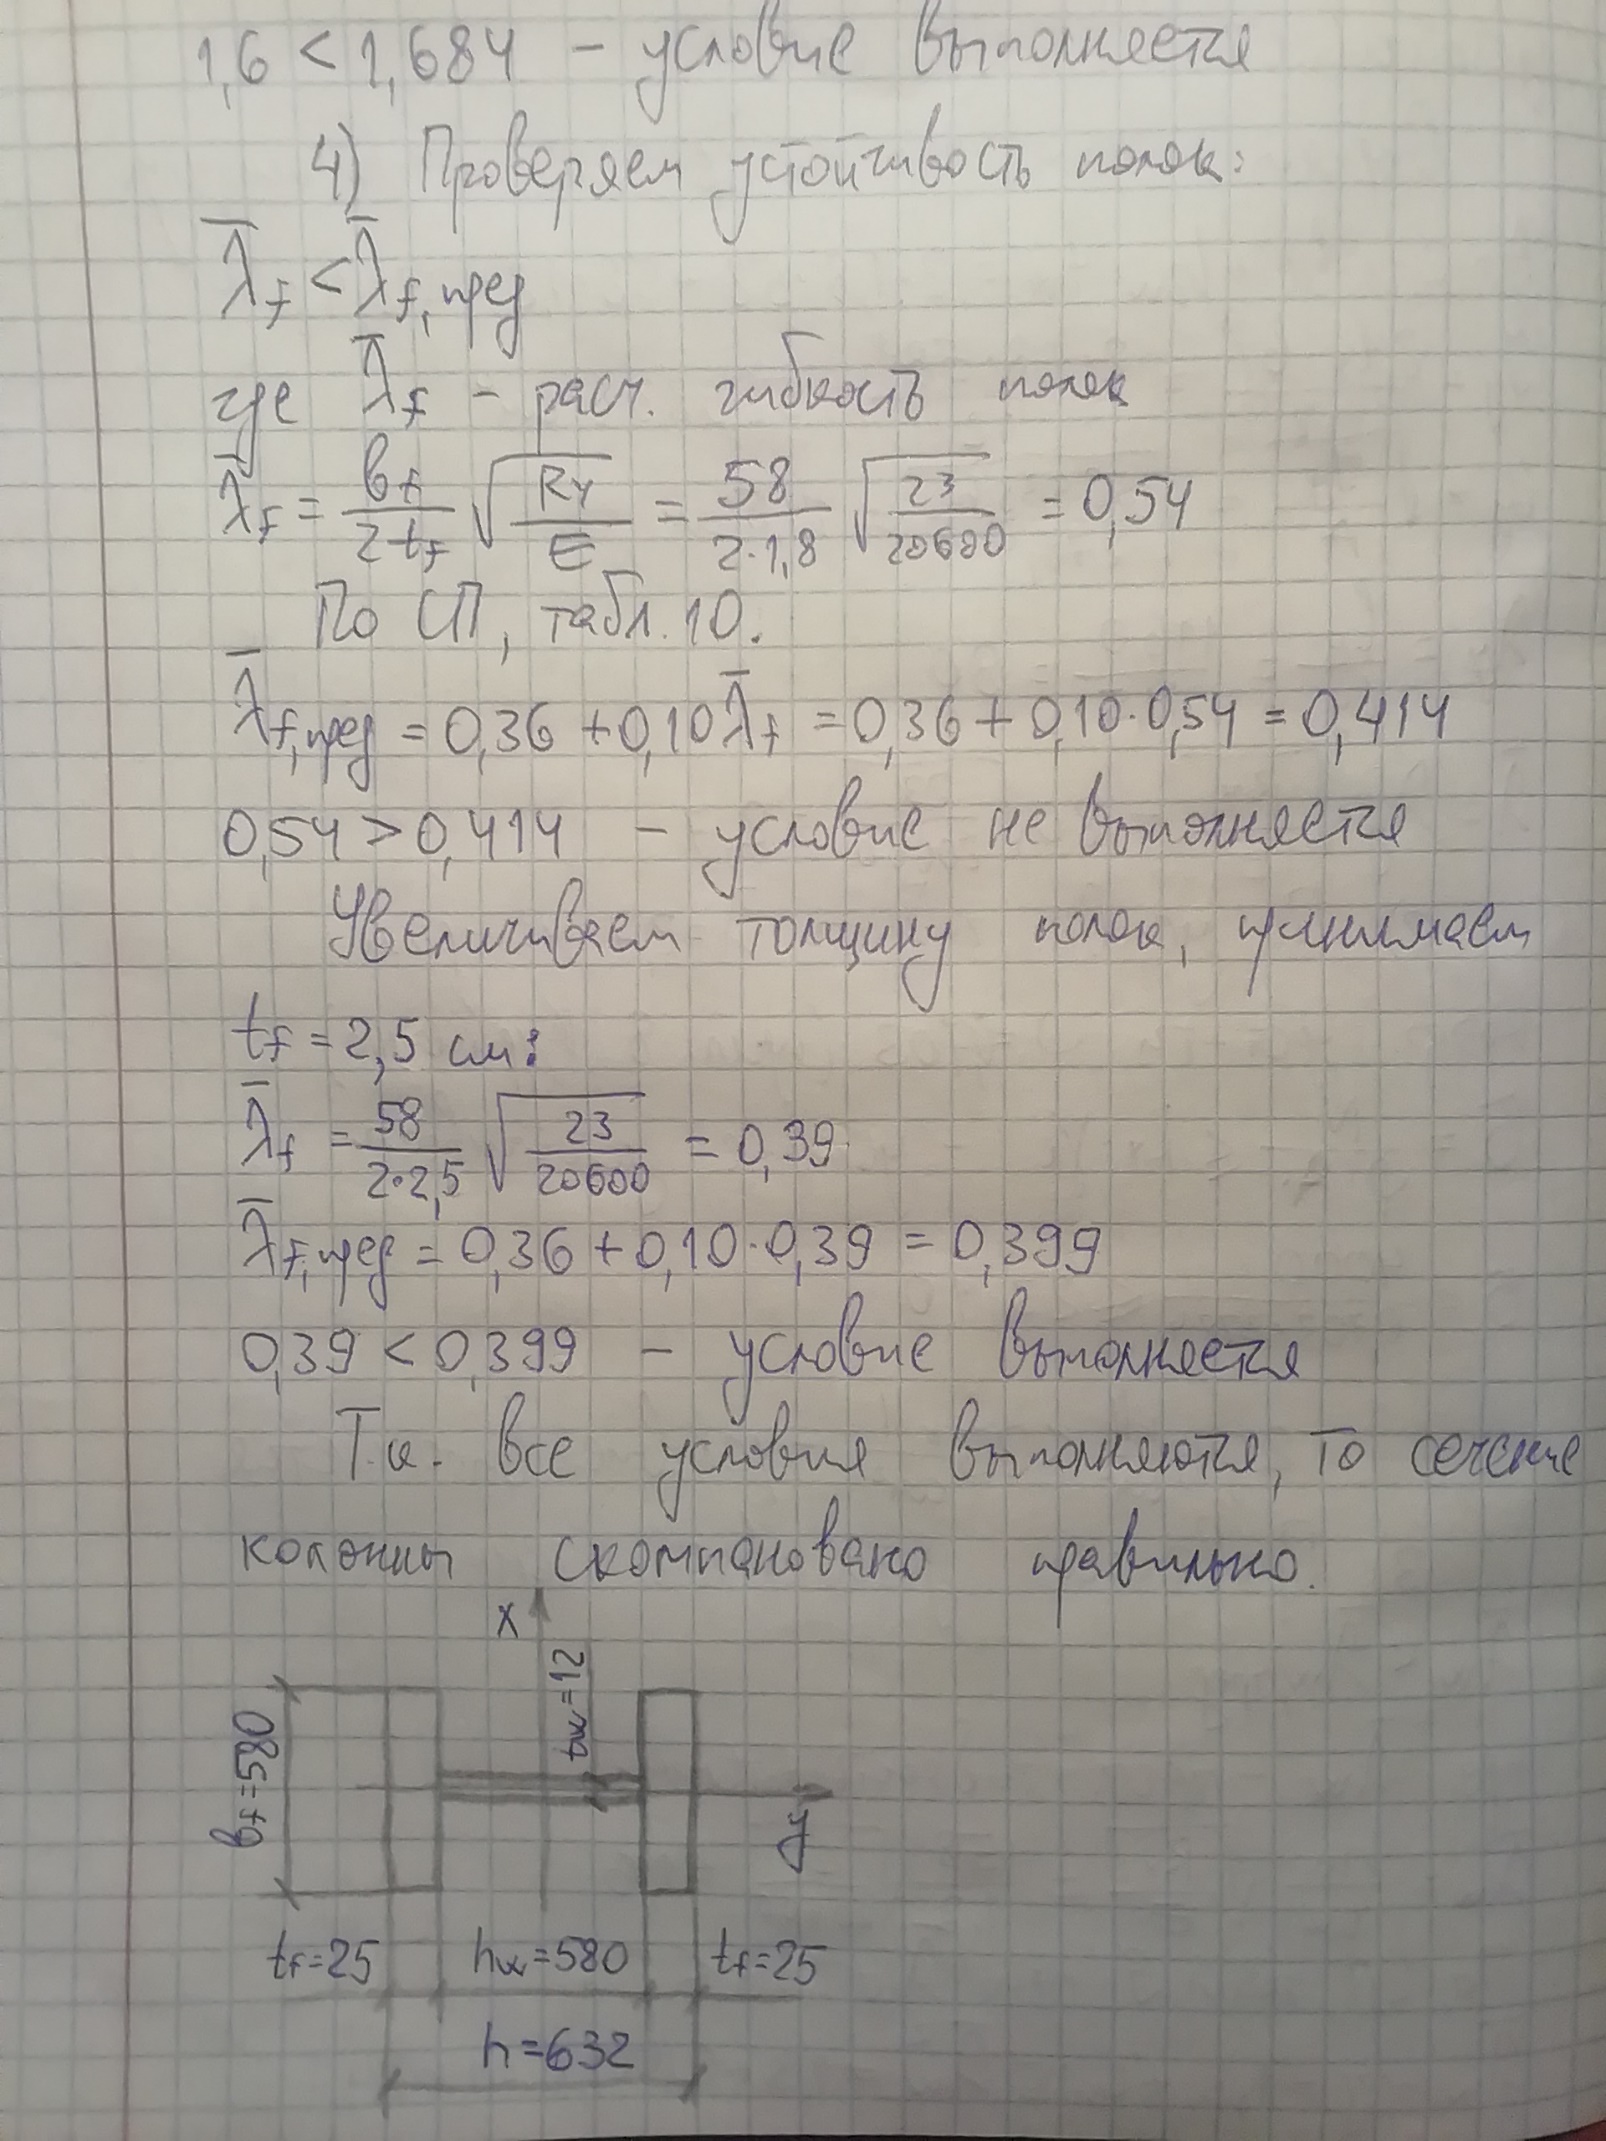 1,6 < 1,684 – условие выполняется
4) Проверяем устойчивость полок:
λ̅f < λ̅f,пред
где λ̅f – расч. гибкость полок
λ̅f = bf/2tf √(Ry/E) = 58/2·1,8 √(23/20600) = 0,54
По СП, табл. 10.
λ̅f,пред = 0,36 + 0,10 λ̅f = 0,36 + 0,10·0,54 = 0,414
0,54 > 0,414 – условие не выполняется
Увеличиваем толщину полок, принимаем
tf = 2,5 см:
λ̅f = 58/2·2,5 √(23/20600) = 0,39
λ̅f,пред = 0,36 + 0,10·0,39 = 0,399
0,39 < 0,399 – условие выполняется
Т.к. все условия выполняются, то сечение
колонны скомпановано правильно.
x
tw=12
bf=580
y
tf=25 hw=580 tf=25
h=632